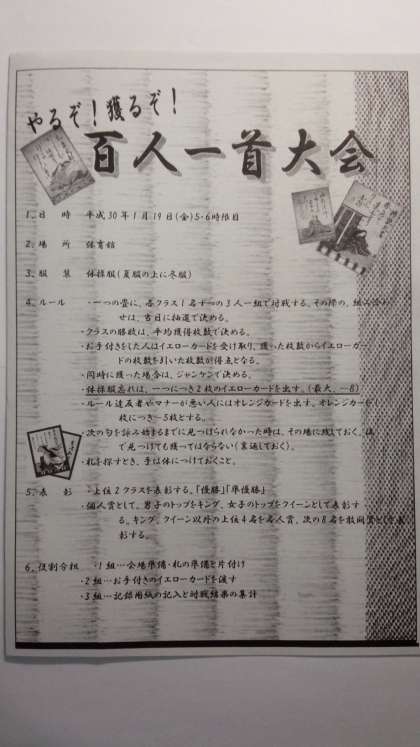 やるぞ！獲るぞ！
百人一首大会
1、日　時　平成30年1月19日(金)5・6時限目
2、場　所　体育館
3、服　装　体操服(夏服の上に冬服)
4、ルール　・一つの畳に、各クラス1名ずつの3人一組で対戦する。その際の、組み合わ
せは、当日に抽選で決める。
・クラスの勝敗は、平均獲得枚数で決める。
・お手付きをした人はイエローカードを受け取り、獲った枚数からイエローカー
ドの枚数を引いた枚数が得点となる。
・同時に獲った場合は、ジャンケンで決める。
・体操服忘れは、一つにつき2枚のイエローカードを出す。(最大、－8)
・ルール違反者やマナーが悪い人にはオレンジカードを出す。オレンジカード1
枚につき－5枚とする。
・次の句を詠み始めるまでに見つけられなかった時は、その場に残しておく。後
で見つけても獲ってはならない(裏返しておく)。
・札を探すとき、手は体につけておくこと。
5、表　彰　・上位2クラスを表彰する。「優勝」「準優勝」
・個人賞として、男子のトップをキング、女子のトップをクイーンとして表彰す
る。キング、クイーン以外の上位4名を名人賞、次の8名を敢闘賞として表
彰する。
6、役割分担　・1組…会場準備・札の準備と片付け
・2組…お手付きのイエローカードを渡す
・3組…記録用紙の記入と対戦結果の集計